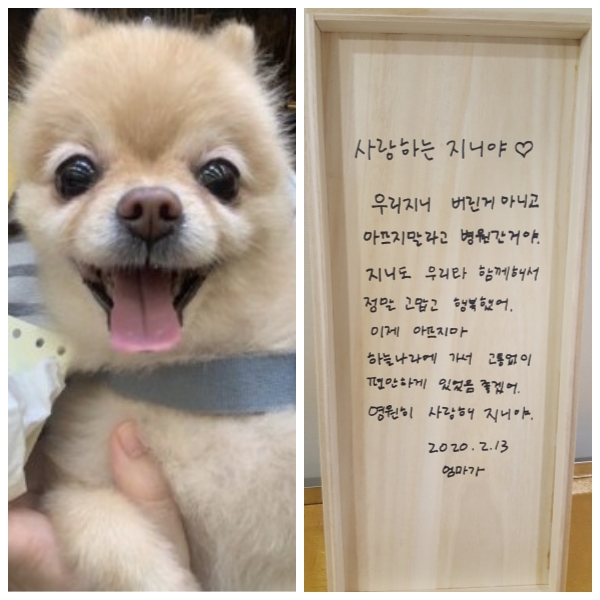 사랑하는 지니야 ♡
우리지니 버린게 아니고
아프지말라고 병원간거야.
지니도 우리랑 함께해서
정말 고맙고 행복했어.
이제 아프지마
하늘나라에 가서 고통없이
편안하게 있었음 좋겠어.
영원히 사랑해 지니야.
2020.2.13
엄마가